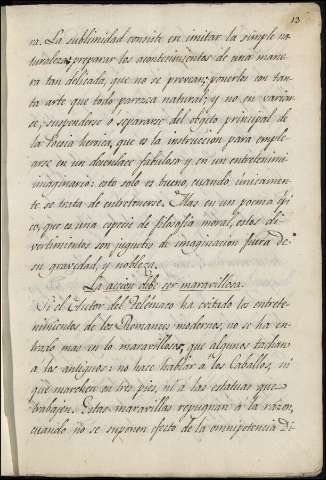 13
ra. La sublimidad consite en imitar la simple na
turaleza; preparar los acontecimientos de una mane
ra tan delicada, que no se prevean; ponerlos con tan
ta arte que todo parezca natural; y no en variar
se, suspenderse o separarse del objeto principal de
la Poesia heroica, que es la instruccion para emple
arse en un desenlace fabuloso y en un entretenim.
imaginario: esto solo es bueno, cuando unicamen
te se trata de entretenerse. Mas en un poema épi
co, que es una especie de filosofia moral, estos di
vertimientos son juguetes de imaginacion fuera de
su gravedad, y nobleza.
La accion debe ser maravillosa.
Si el Autor del Telemaco ha evitado los entrete
nimientos de los Romances modernos, no se ha en
trado mas en lo maravilloso, que algunos tachan
a los antiguos: no hace hablar a los Caballos, ni
que marchen en tres pies, ni a las estatuas que
trabajen. Estas maravillas repugnan a la razon,
cuando no se suponen efecto de la omnipotencia Di-